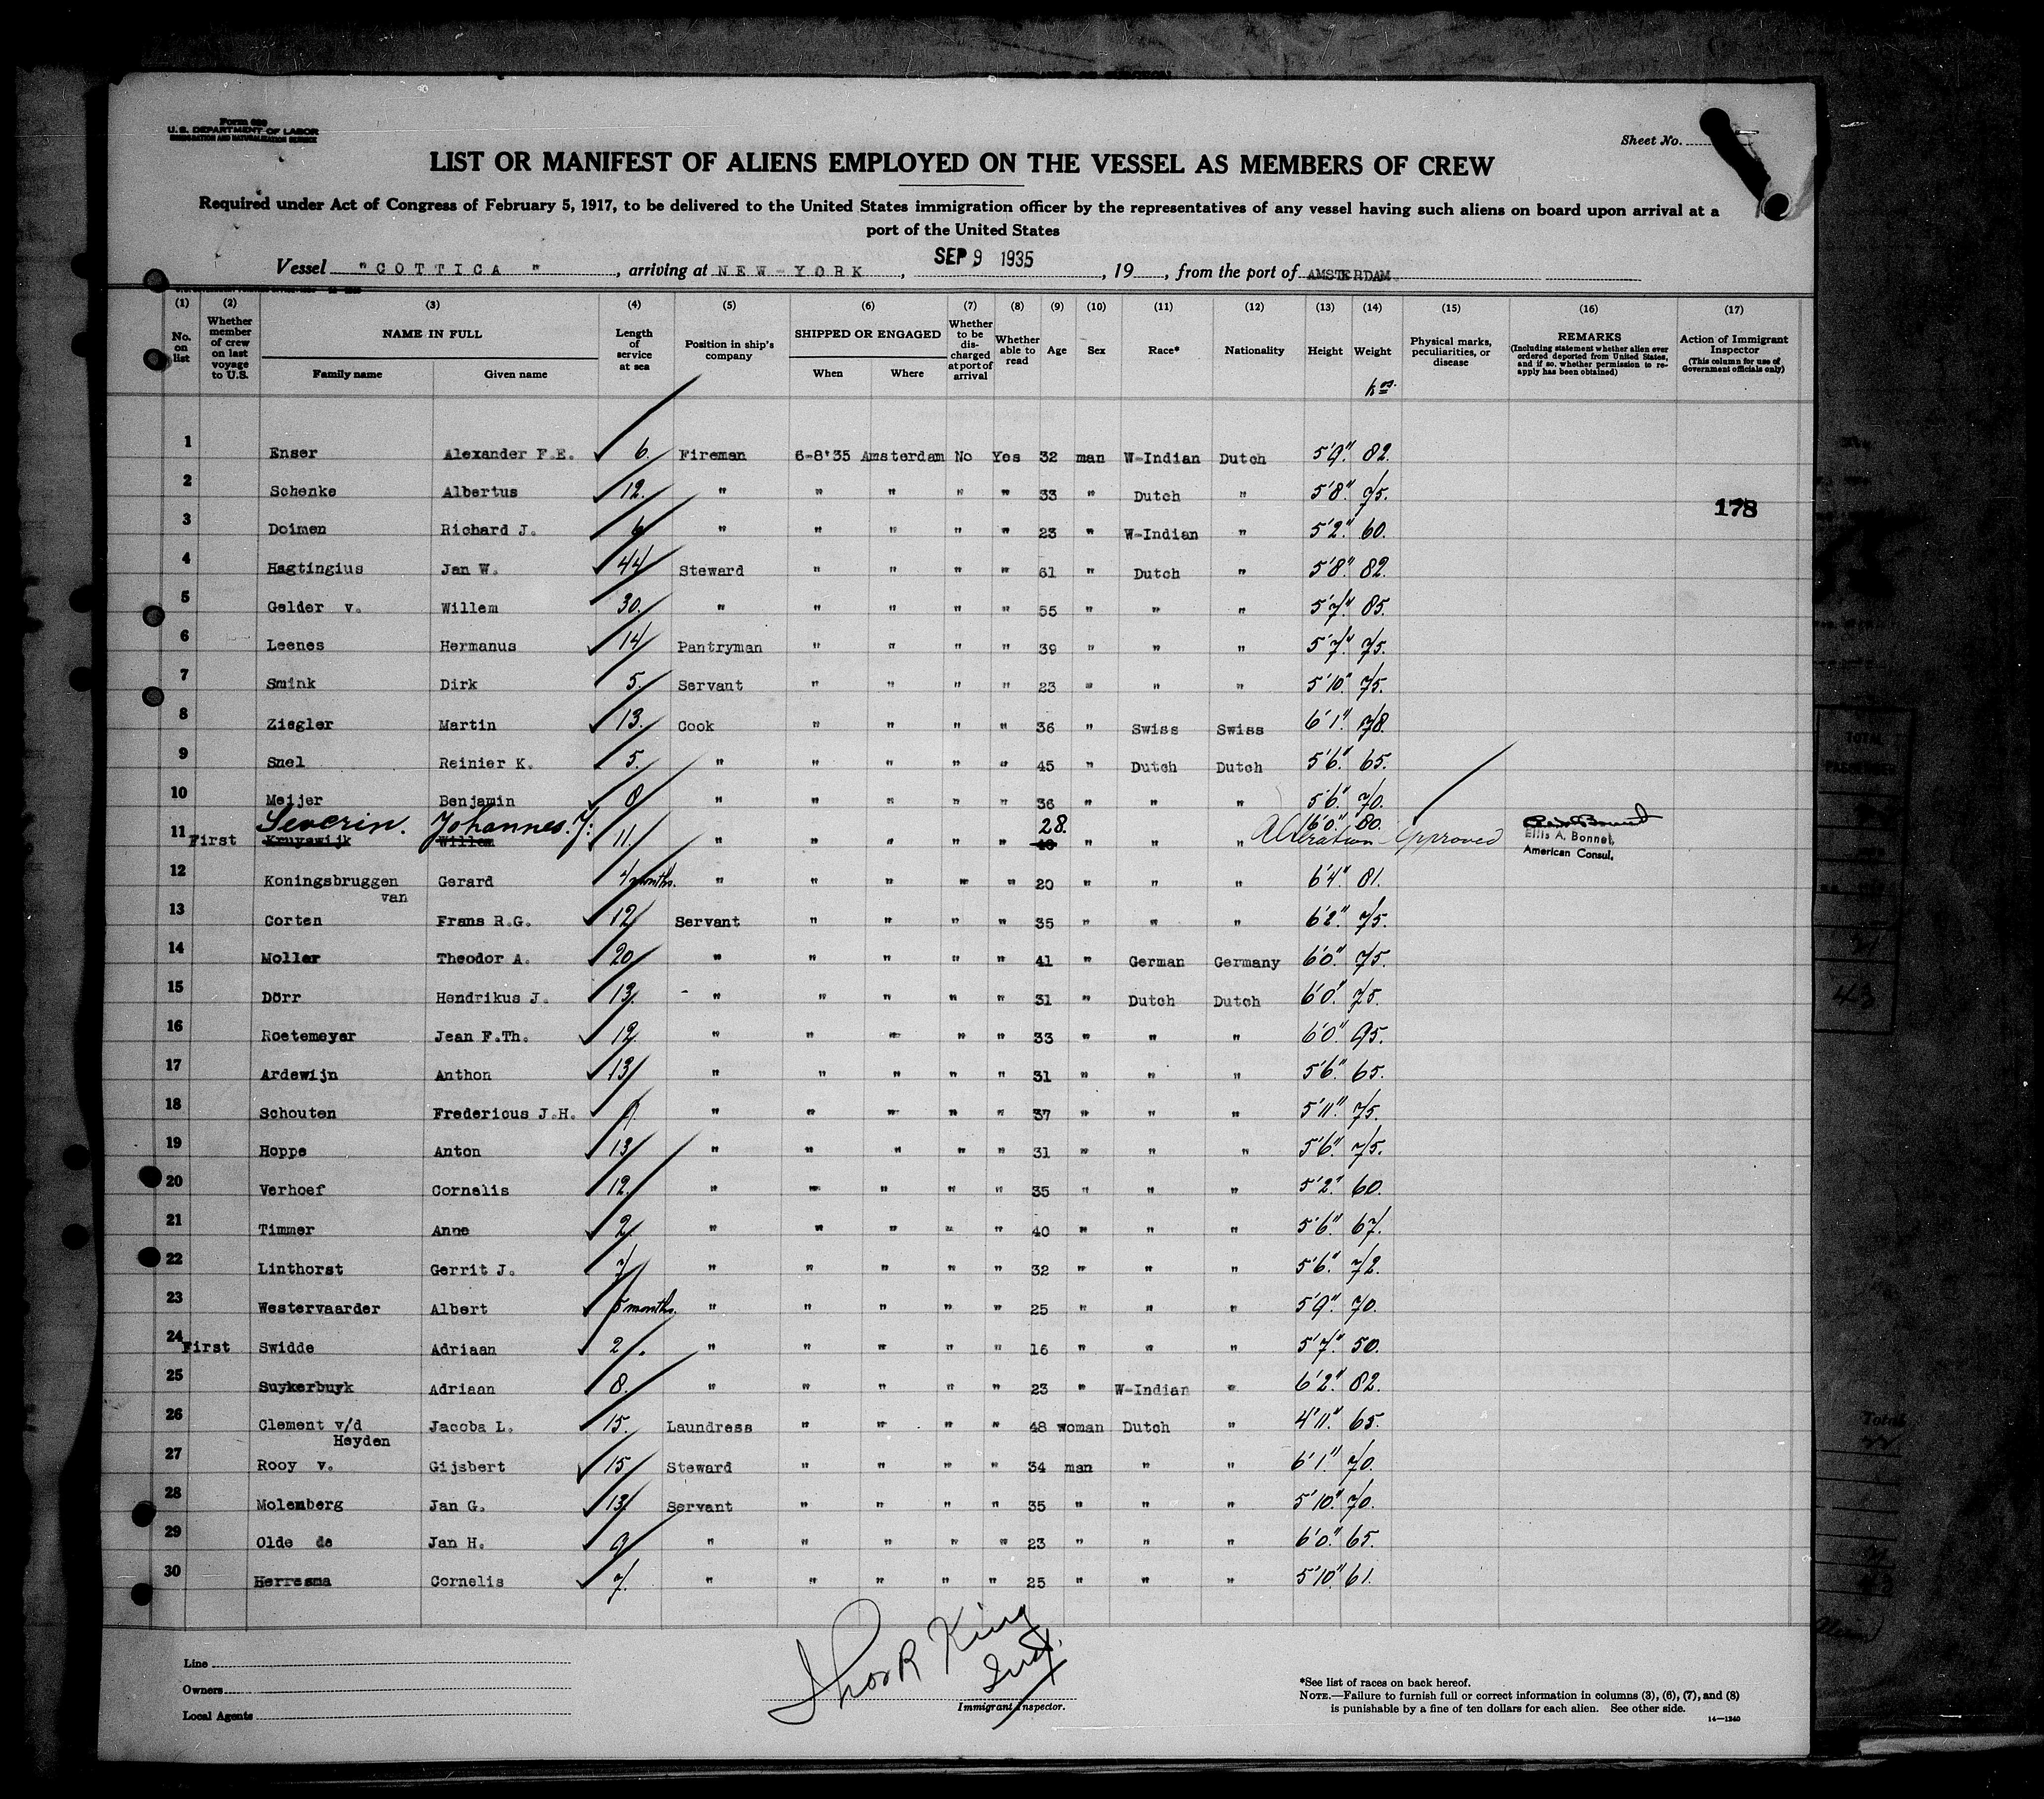 Form 680
U. S. DEPARTMENT OF LABOR
IMMIGRATION AND NATURALIZATION SERVICE
Sheet No.
LIST OR MANIFEST OF ALIENS EMPLOYED ON THE VESSEL AS MEMBERS OF CREW
Required under Act of Congress of February 5, 1917, to be delivered to the United States immigration officer by the representatives of any vessel having such aliens on board upon arrival at a
port of the United States
Vessel "COTTICA", arriving at NEW-YORK, SEP 9 1935, 19, from the port of AMSTERDAM
(1) (2) (3) (4) (5) (6) (7) (8) (9) (10) (11) (12) (13) (14) (15) (16) (17)
No. on list | Whether member of crew on last voyage to U.S. | NAME IN FULL Family name Given name | Length of service at sea | Position in ship's company | SHIPPED OR ENGAGED When Where | Whether to be discharged at port of arrival | Whether able to read | Age | Sex | Race* | Nationality | Height | Weight | Physical marks, peculiarities, or disease | REMARKS (Including statement whether alien ever ordered deported from United States, and if so, whether permission to reapply has been obtained) | Action of Immigrant Inspector (This column for use of Government officials only)
kgs.
1 Enser Alexander F.E. 6. Fireman 6-8'35 Amsterdam No Yes 32 man W-Indian Dutch 5'9" 82.
2 Schenke Albertus 12. " " " " " 33 " Dutch " 5'8" 75.
178
3 Doimen Richard J. 6 " " " " " 23 " W-Indian " 5'2" 60.
4 Hagtingius Jan W. 44 Steward " " " " 61 " Dutch " 5'8" 82.
5 Gelder v. Willem 30. " " " " " 55 " " " 5'7" 85.
6 Leenes Hermanus 14 Pantryman " " " " 39 " " " 5'7" 75.
7 Smink Dirk 5. Servant " " " " 23 " " " 5'10" 75.
8 Ziegler Martin 13. Cook " " " " 36 " Swiss Swiss 6'1" 78.
9 Snel Reinier K. 5. " " " " " 45 " Dutch Dutch 5'6" 65.
10 Meijer Benjamin 8 " " " " " 36 " " " 5'6" 70.
Severin. Johannes. J: 28. 6'0" 80.
11 First Kruyswijk Willem 11. " " " " " " " " Alteration Approved Ellis A. Bonnet, American Consul.
12 Koningsbruggen van Gerard 4 months. " " " " " 20 " " " 6'4" 81.
13 Corten Frans R.G. 12 Servant " " " " 35 " " " 6'2" 75.
14 Moller Theodor A. 20 " " " " " 41 " German Germany 6'0" 75.
15 Dörr Hendrikus J. 13. " " " " " 31 " Dutch Dutch 6'0" 75.
16 Roetemeyer Jean F.Th. 12 " " " " " 33 " " " 6'0" 95.
17 Ardewijn Anthon 13 " " " " " 31 " " " 5'6" 65.
18 Schouten Fredericus J.H. " " " " " 37 " " " 5'11" 75.
19 Hoppe Anton 13 " " " " " 31 " " " 5'6" 75.
20 Verhoef Cornelis 12. " " " " " 35 " " " 5'2" 60.
21 Timmer Anne 2. " " " " " 40 " " " 5'6" 67.
22 Linthorst Gerrit J. 7 " " " " " 32 " " " 5'6" 72.
23 Westervaarder Albert 5 months. " " " " " 25 " " " 5'9" 70.
24 First Swidde Adriaan 2 " " " " " " 16 " " " 5'7" 50.
25 Suykerbuyk Adriaan 8. " " " " " 23 " W-Indian " 6'2" 82.
26 Clement v/d Heyden Jacoba L. 15. Laundress " " " " 48 woman Dutch " 4'11" 65.
27 Rooy v. Gijsbert 15 Steward " " " " 34 man " " 6'1" 70.
28 Molenberg Jan G. 13 Servant " " " " 35 " " " 5'10" 70.
29 Olde de Jan H. 9 " " " " " 23 " " " 6'0" 65.
30 Herresma Cornelis 7. " " " " " 25 " " " 5'10" 61.
Line
Owners
Local Agents
King
Immigrant Inspector.
*See list of races on back hereof.
NOTE.—Failure to furnish full or correct information in columns (3), (6), (7), and (8)
is punishable by a fine of ten dollars for each alien. See other side.
14—1240
TOTAL
PASSENGER
43
Total